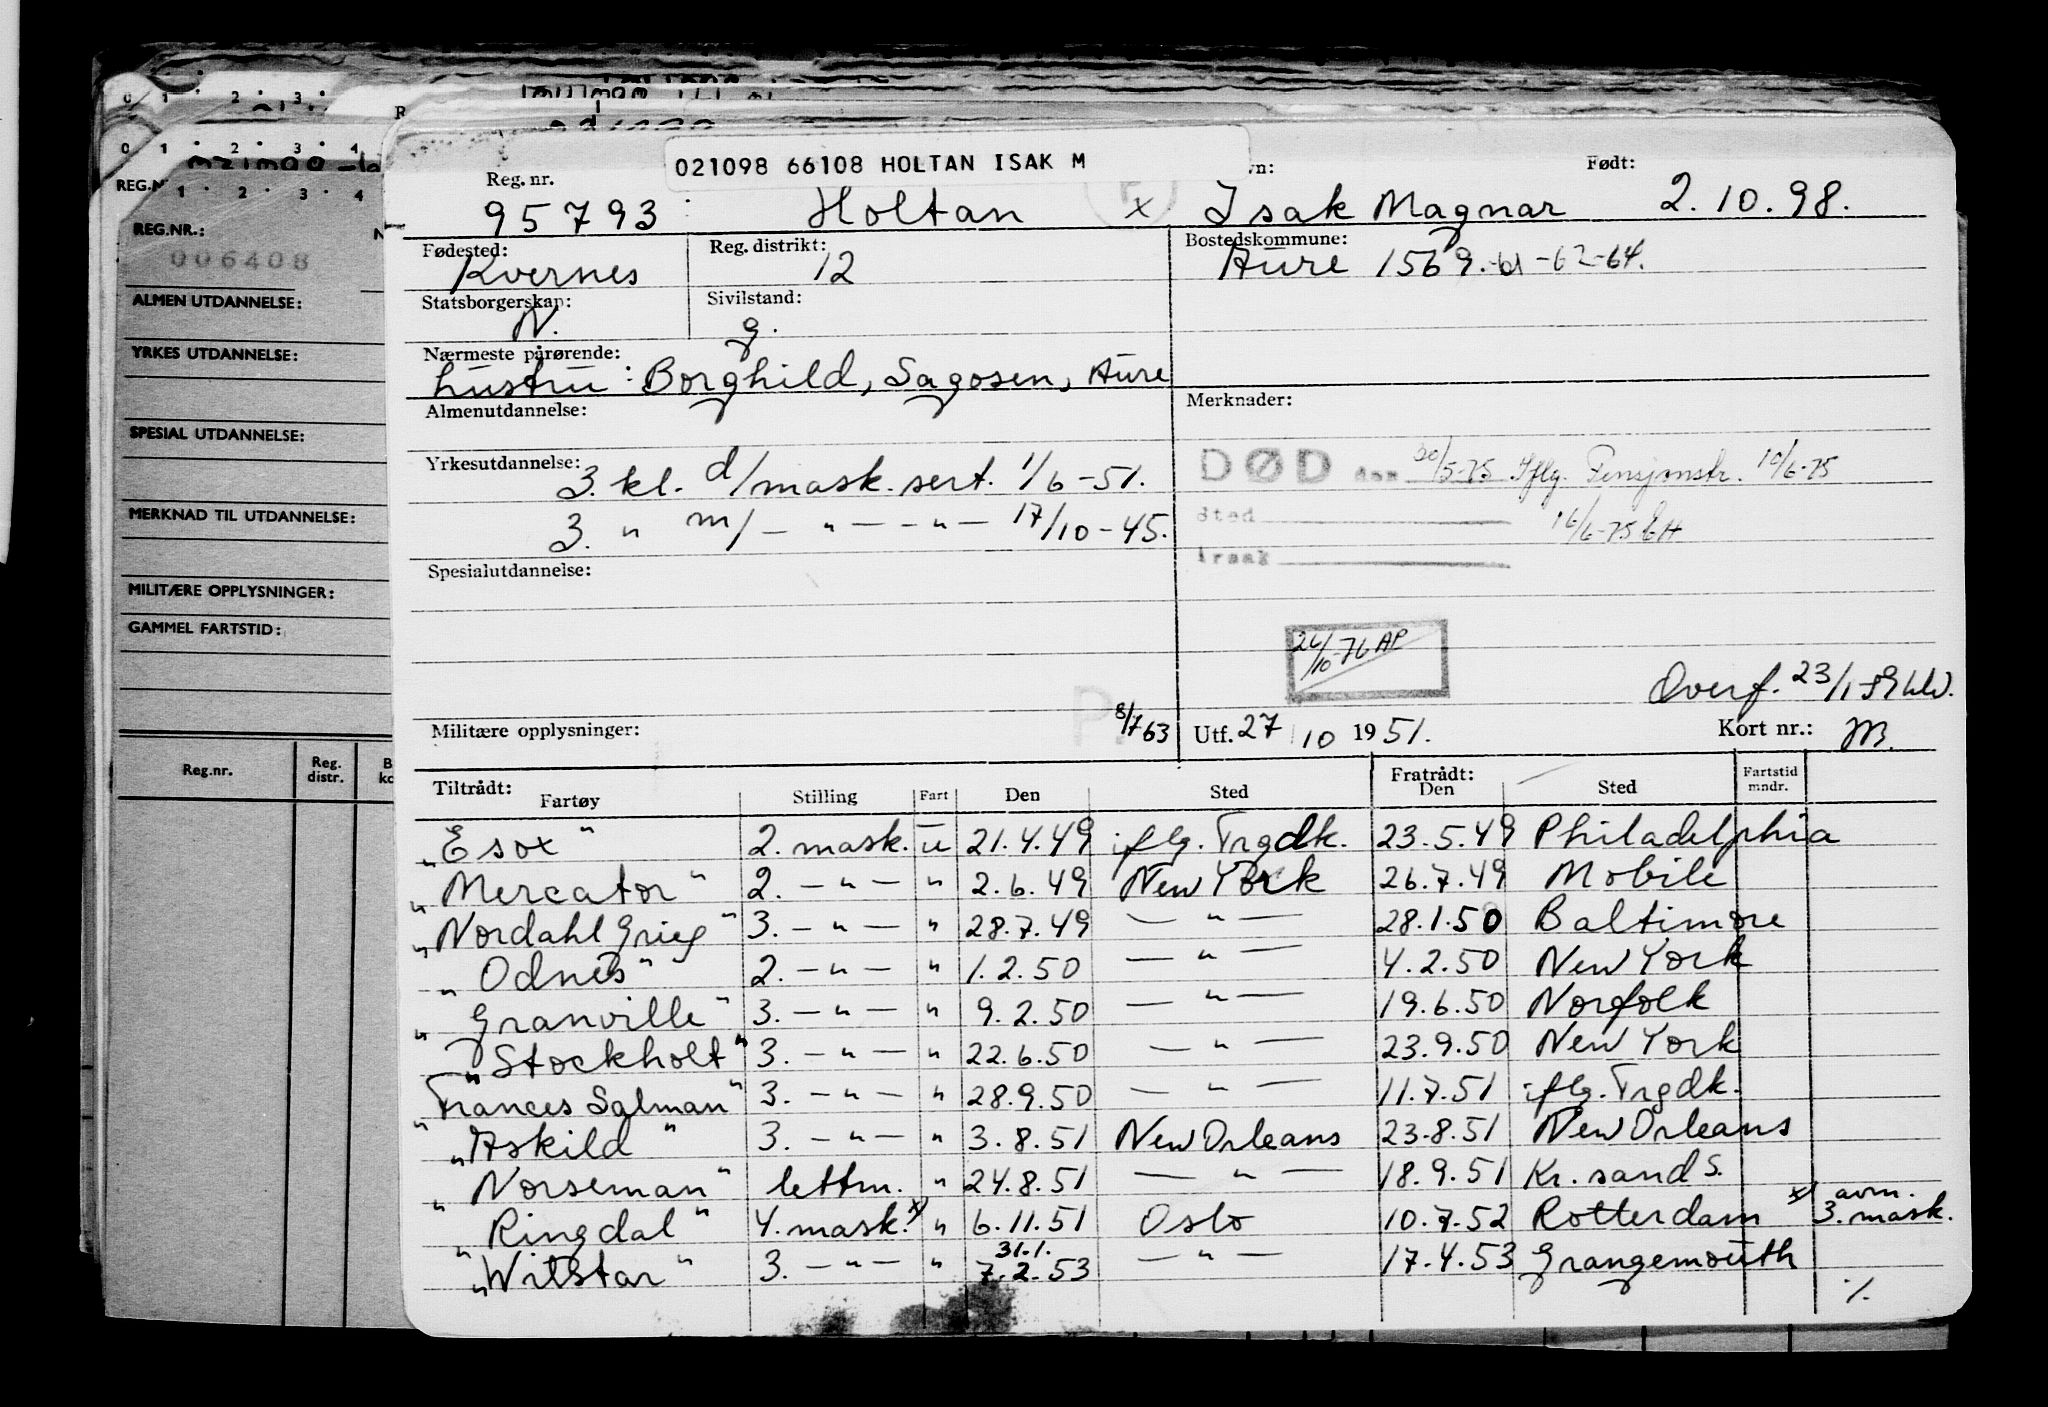 021098 66108 HOLTAN ISAK M
Reg. nr. vn: Født:
95793 Holtan x Isak Magnar 2.10.98.
Fødested: Reg. distrikt: Bostedskommune:
Kvernes 12 Aure 1569.-61-62-64.
Statsborgerskap: Sivilstand:
N. g.
Nærmeste pårørende:
hustru: Borghild, Sagosen, Aure
Almenutdannelse: Merknader:
Yrkesutdannelse:
3. kl. d/mask.sert. 1/6-51.
3. " m/ — " — - " — 17/10-45.
DØD den 30/5-75 Iflg. Pensjonstr. 10/6-75
Sted 16/6-75 EH
årsak
Spesialutdannelse:
26/10-76 AP
Overf. 23/1-59
P.
Militære opplysninger: 8/7 63 Utf. 27/10 1951. Kort nr.: M.
Tiltrådt: Fratrådt: Fartstid
Fartøy Stilling Fart Den Sted Den Sted mndr.
"Esox" 2. mask. u 21.4.49 iflg. Trgdk. 23.5.49 Philadelphia
"Mercator" 2. — " — " 2.6.49 New York 26.7.49 Mobile
"Nordahl Grieg" 3. — " — " 28.7.49 — " — 28.1.50 Baltimore
"Odnes" 2. — " — " 1.2.50 — " — 4.2.50 New York
"Granville" 3. — " — " 9.2.50 — " — 19.6.50 Norfolk
"Stockholt" 3. — " — " 22.6.50 — " — 23.9.50 New York
"Frances Salman" 3. — " — " 28.9.50 — " — 11.7.51 iflg. Trgdk.
"Askild" 3. — " — " 3.8.51 New Orleans 23.8.51 New Orleans
"Norseman" lettm. " 24.8.51 — " — 18.9.51 Kr. sand S.
"Ringdal" 4. mask. x) " 6.11.51 Oslo 10.7.52 Rotterdam x) avm. 3. mask.
31.1.
"Wilstar" 3. — " — " 7.2.53 — " — 17.4.53 Grangemouth
./.
0 1 . 2 . 3 .
0 1 . 2 . 3 . 4
REG.N
1 . 2 . 3 . 4
REG.NR.:
006408
ALMEN UTDANNELSE:
YRKES UTDANNELSE:
SPESIAL UTDANNELSE:
MERKNAD TIL UTDANNELSE:
MILITÆRE OPPLYSNINGER:
GAMMEL FARTSTID:
Reg.nr. Reg. distr.